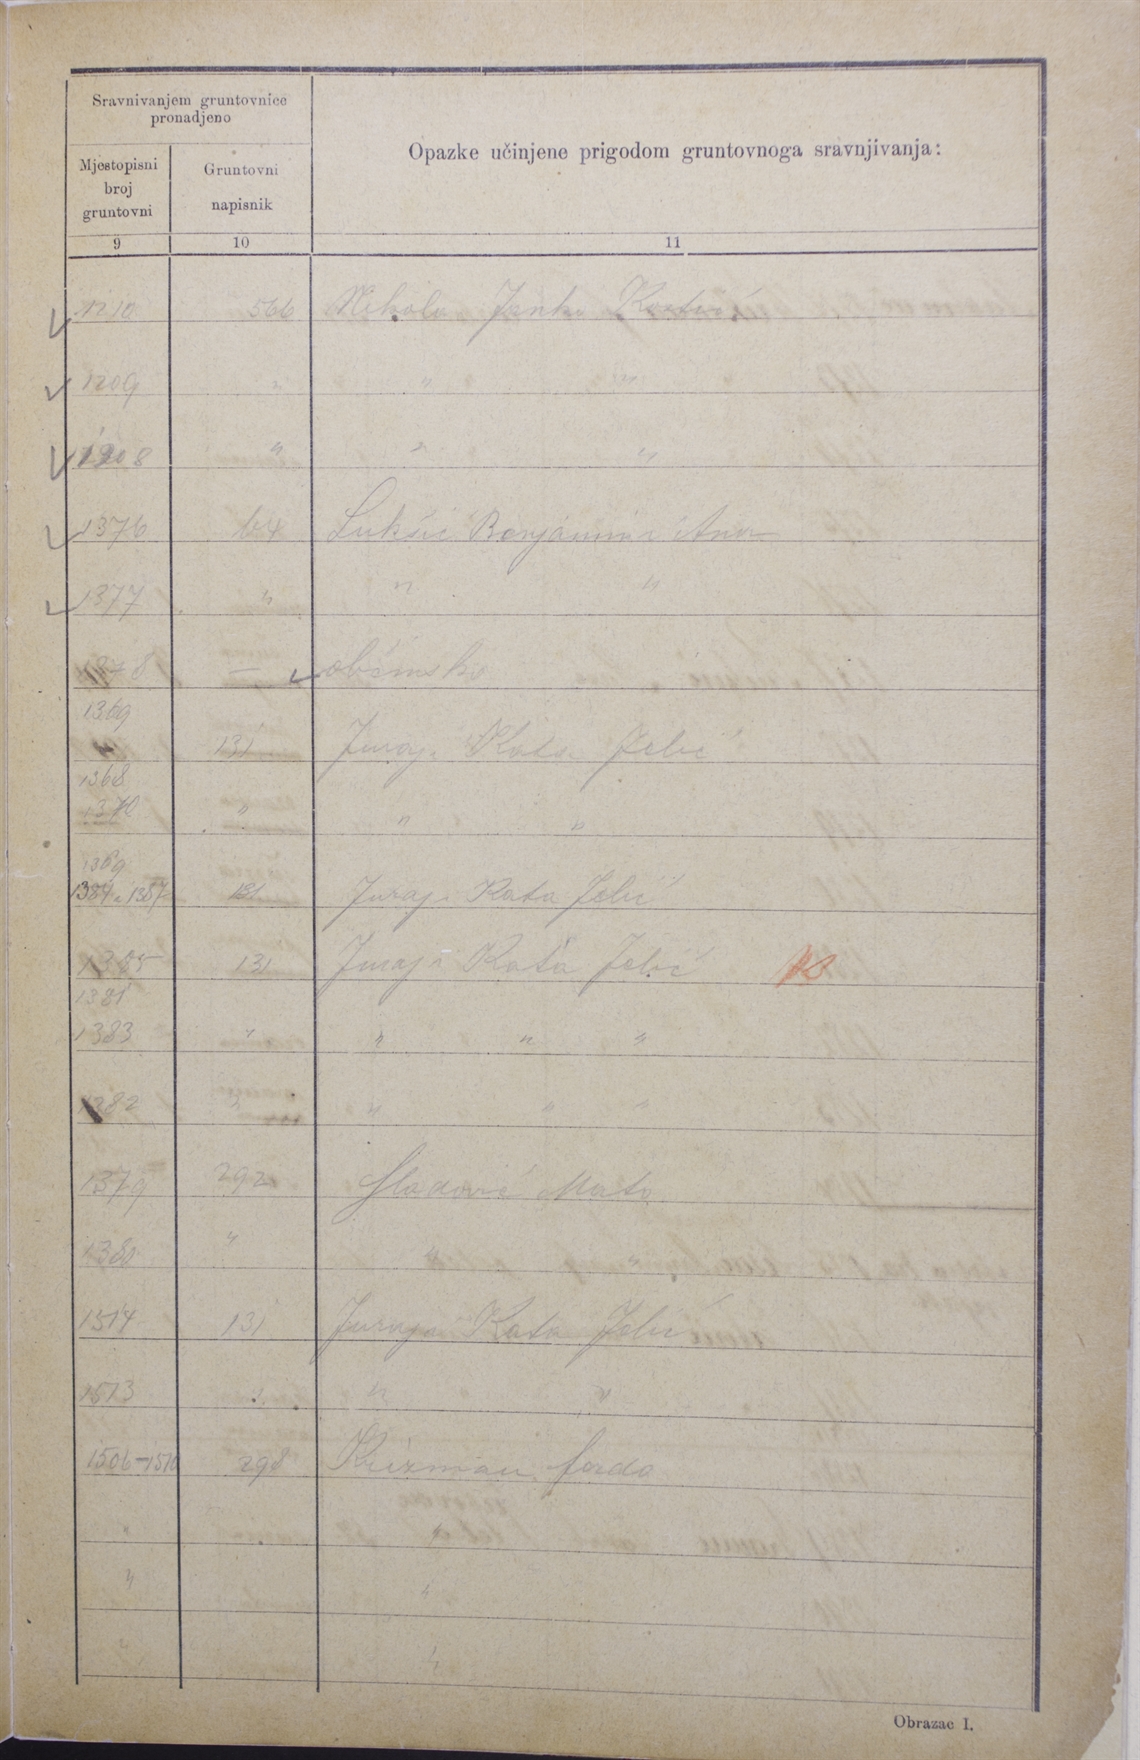 Sravnivanjem gruntovnice
pronadjeno
Opazke učinjene prigodom gruntovnoga sravnjivanja:
Mjestopisni
broj
gruntovni
Gruntovni
napisnik
9 10 11
1210 566 Janko
1209 " " "
1208 " " "
1376 64 Lukšić Benjamin i Ana
1377 " " "
1378 — občinsko
1369
131 Juraj i Kata Jelić
1368
1370 " " "
1369
1384 i 1387 131 Juraj i Kata Jelić
1385 131 Juraj i Kata Jelić
1381
1383 " " " "
1382 " " " "
1379 292 Mato
1380 " " "
1514 131 Juraj i Kata Jelić
1513 " " " "
1506-1510 298 Križman
"
" "
" "
Obrazac I.